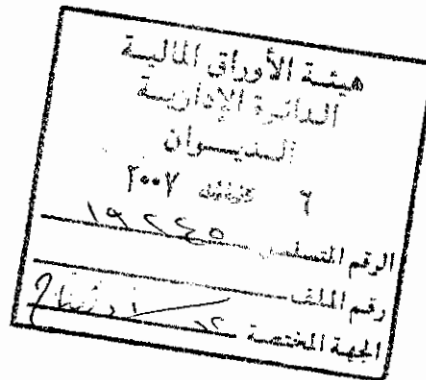 هيئة الأوراق المالية
الدائرة الإدارية
الديوان
٦ ٢٠٠٧
الرقم التسلسلي ١٩٢٤٥
رقم الملف
الجهة المختصة